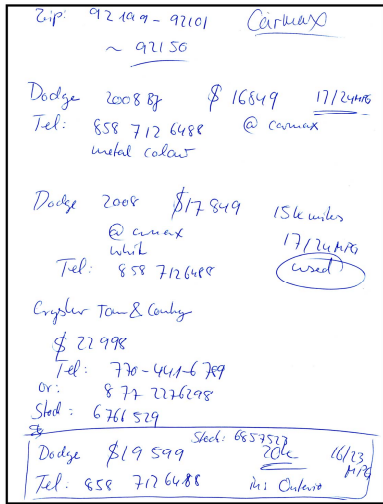 Zip: 92199 - 92101 Carmax
~ 92150
Dodge 2008 $ 16849 17/24 MPG
Tel: 858 712 6488 @ carmax
metal colour
Dodge 2008 $17849 15k miles
@ carmax 17/24 MPG
whit used
Tel: 858 7126488
Crysler Town & Contry
$ 22998
Tel: 770-441-6789
or: 877 2276298
Stock: 6761529
Stock: 6857527
Dodge $19599 20k 16/23 MPG
Tel: 858 712 6488 in: Ontario